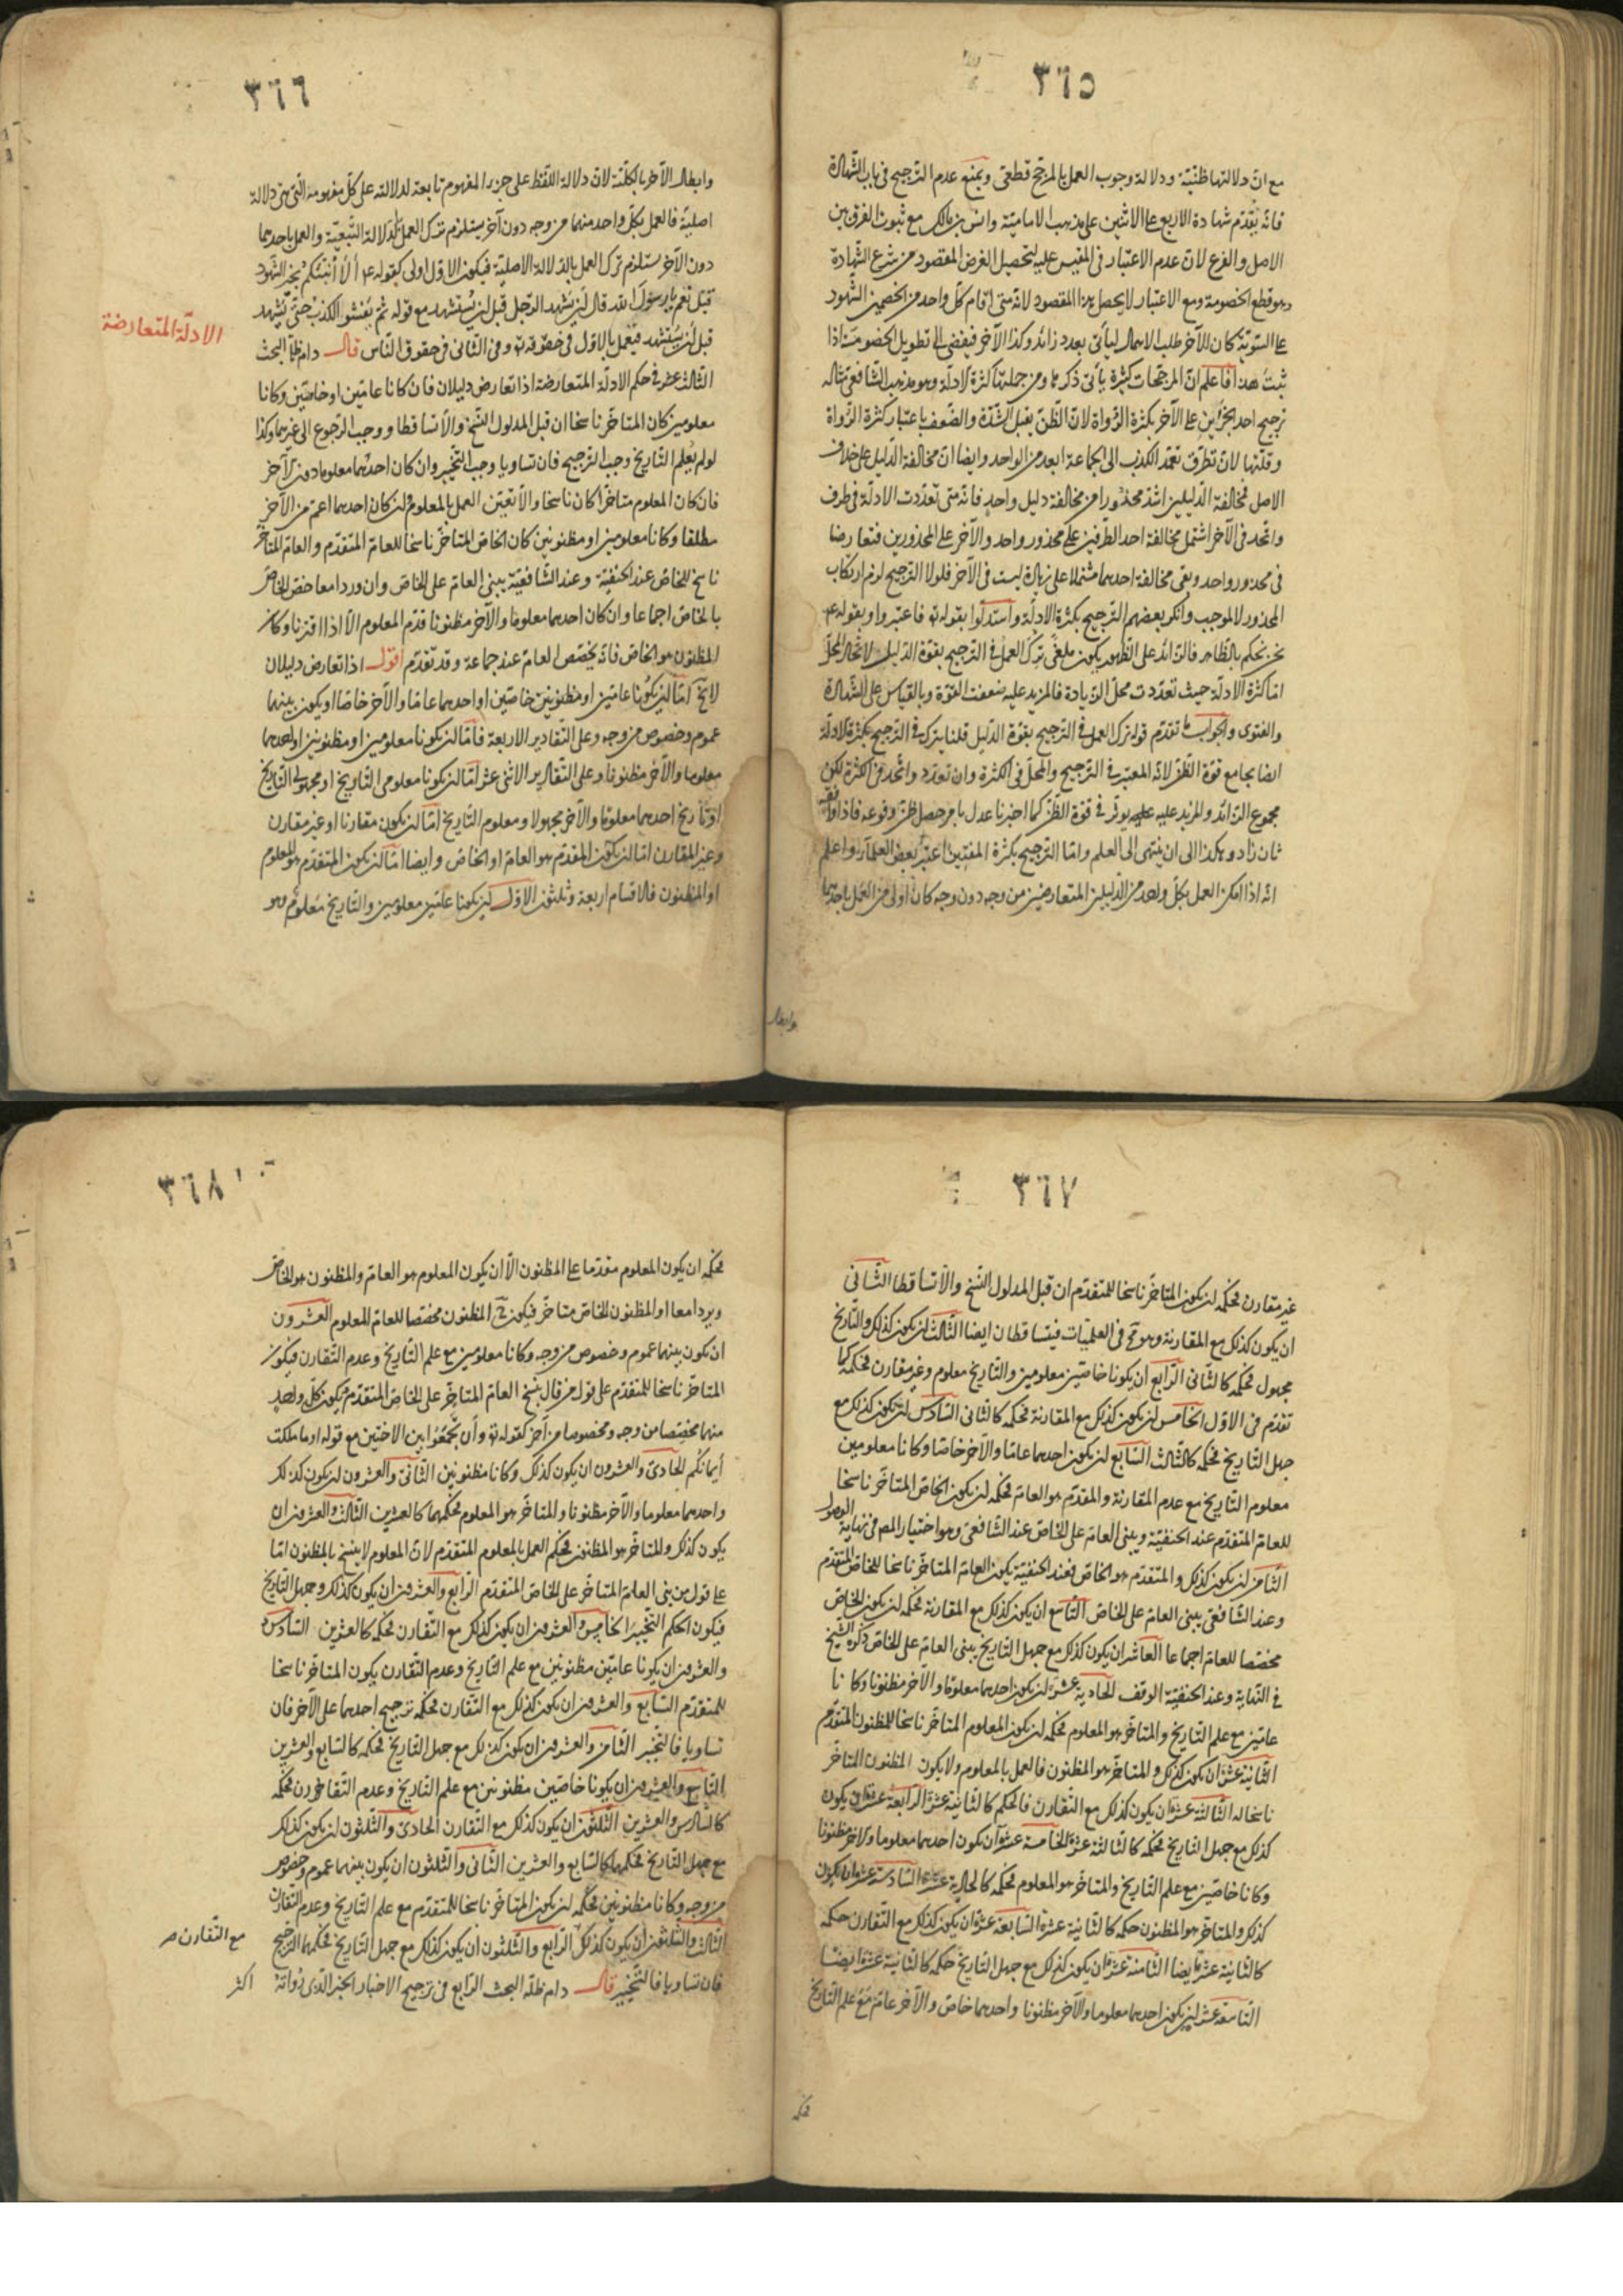 ٣٦٥
مع انّ دلالتها ظنيّة ودلالة وجوب العمل بالمرجّح قطعىّ ويمنع عدم الترجيح فى باب الشهادة
فانه يقدّم شهادة الاربع على الاثنين على مذهب الامامية وانس بن مالك مع ثبوت الفرق بين
الاصل والفرع لانّ عدم الاعتبار فى المقيس عليه لتحصيل الغرض المقصود من شرع الشهادة
وهو قطع الخصومة ومع الاعتبار لا يحصل هذا المقصود لانه متى اقام كلّ واحد من الخصمين الشهود
على السّويّة كان للآخر طلب الامهال ليأتى بعدد زائد وكذا الآخر فيفضى الى تطويل الخصومة اذا
ثبت هذا فاعلم انّ المرجّحات كثيرة يأتى ذكرها ومن جملتها كثرة الادلّة وهو مذهب الشافعى مثاله
ترجيح احد الخبرين على الآخر بكثرة الرّواة لانّ الظنّ يقبل الشدّة والضعف باعتبار كثرة الرّواة
وقلّتها لانّ تطرّق تعمّد الكذب الى الجماعة ابعد من الواحد وايضا انّ مخالفة الدّليل على خلاف
الاصل فمخالفة الدّليلين اشدّ محذورا من مخالفة دليل واحد فانه متى تعدّدت الادلّة فى طرف
واتّحد فى الآخر اشتمل مخالفة احد الطّرفين على محذور واحد والآخر على المحذورين فتعارضا
فى محذور واحد وبقى مخالفة احدهما مشتملا على زيادة ليست فى الآخر فلولا الترجيح لزم ارتكاب
المحذور لا لموجب وانكر بعضهم الترجيح بكثرة الادلّة واستدلّوا بقوله تع فاعتبروا وبقوله عم
نحن نحكم بالظاهر فالزائد على الظهور يكون ملغى ترك العمل فى الترجيح بقوّة الدّليل لاتّحاد المحلّ
امّا كثرة الادلّة حيث تعدّدت محلّ الزيادة فالمزيد عليه ضعفت القوّة وبالقياس على الشهادة
والفتوى والجواب ما تقدّم قوله ترك العمل فى الترجيح بقوّة الدّليل قلنا يترك فى الترجيح بكثرة الادلّة
ايضا بجامع قوّة الظنّ لانه المعتبر فى الترجيح والمحلّ فى الكثرة وان تعدّد واتّحد فى الكثرة لكن
مجموع الزائد والمزيد عليه يؤثّر فى قوّة الظنّ كما اخبرنا عدل بامر حصل ظنّ وقوعه فاذا وافقه
ثان زاد وهكذا الى ان ينتهى الى العلم وامّا الترجيح بكثرة المفتين اعتبره بعض العلماء واعلم
انه اذا امكن العمل بكلّ واحد من الدّليلين المتعارضين من وجه دون وجه كان اولى من العمل باحدهما
وابطال
٣٦٦
وابطال الآخر بالكلّية لانّ دلالة اللفظ على جزء المفهوم تابعة لدلالته على كلّ مفهومه الّتى هى دلالة
اصليّة فالعمل بكلّ واحد منهما من وجه دون آخر يستلزم ترك العمل بالدّلالة التّبعيّة والعمل باحدهما
دون الآخر يستلزم ترك العمل بالدّلالة الاصليّة فيكون الاوّل اولى كقوله عم ألا أنبّئكم بخير الشهود
قيل نعم يا رسول الله قال أن يشهد الرّجل قبل ان يستشهد مع قوله ثم يفشوا الكذب حتّى يشهد
قبل أن يستشهد فيعمل بالاوّل فى حقوقه تع وفى الثانى فى حقوق النّاس قال دام ظلّه البحث
الادلّة المتعارضة
الثالث عشر فى حكم الادلّة المتعارضة اذا تعارض دليلان فان كانا عامّين او خاصّين وكانا
معلومين كان المتاخّر ناسخا ان قبل المدلول النّسخ والّا تساقطا ووجب الرّجوع الى غيرهما وكذا
لو لم يعلم التّاريخ وجب الترجيح فان تساويا وجب التّخيير وان كان احدهما معلوما دون الآخر
فان كان المعلوم متاخّرا كان ناسخا والّا تعيّن العمل بالمعلوم وان كان احدهما اعمّ من الآخر
مطلقا وكانا معلومين او مظنونين كان الخاصّ المتاخّر ناسخا للعامّ المتقدّم والعامّ المتاخّر
ناسخ للخاصّ عند الحنفيّة وعند الشّافعيّة يبنى العامّ على الخاصّ وان وردا معا خصّ الخاصّ
بالخاصّ اجماعا وان كان احدهما معلوما والآخر مظنونا قدّم المعلوم الّا اذا اقترنا وكان
المظنون هو الخاصّ فانّه يخصّص العامّ عند جماعة وقد تقدّم اقول اذا تعارض دليلان
لا يخ امّا ان يكونا عامّين او مظنونين خاصّين او احدهما عامّا والآخر خاصّا او يكون بينهما
عموم وخصوص من وجه وعلى التقادير الاربعة فامّا ان يكونا معلومين او مظنونين او احدهما
معلوما والآخر مظنونا وعلى التّقادير الاثنى عشر امّا ان يكونا معلومى التّاريخ او مجهولى التّاريخ
او تاريخ احدهما معلوما والآخر مجهولا ومعلوم التّاريخ امّا ان يكون مقارنا او غير مقارن
وغير المقارن امّا ان يكون المقدّم هو العامّ او الخاصّ وايضا امّا ان يكون المتقدّم هو المعلوم
او المظنون فالاقسام اربعة وثلثون الاوّل ان يكونا عامّين معلومين والتّاريخ معلوم وهو
٣٦٧
غير مقارن فحكمه ان يكون المتاخّر ناسخا للمتقدّم ان قبل المدلول النّسخ والّا تساقطا الثّانى
ان يكون كذلك مع المقارنة وهو مح فى العلميّات فيتساقطان ايضا الثّالث ان يكون كذلك والتّاريخ
مجهول فحكمه كالثّانى الرّابع ان يكونا خاصّين معلومين والتّاريخ معلوم وغير مقارن فحكمه كما
تقدّم فى الاوّل الخامس ان يكون كذلك مع المقارنة فحكمه كالثّانى السّادس ان يكون كذلك مع
جهل التّاريخ فحكمه كالثّالث السّابع ان يكون احدهما عامّا والآخر خاصّا وكانا معلومين
معلوم التّاريخ مع عدم المقارنة والمقدّم هو العامّ فحكمه ان يكون الخاصّ المتاخّر ناسخا
للعامّ المتقدّم عند الحنفيّة ويبنى العامّ على الخاصّ عند الشّافعى وهو اختيار المص فى نهاية الوصول
الثّامن ان يكون كذلك والمتقدّم هو الخاصّ فعند الحنفيّة يكون العامّ المتاخّر ناسخا للخاصّ المتقدّم
وعند الشّافعى يبنى العامّ على الخاصّ التّاسع ان يكون كذلك مع المقارنة فحكمه ان يكون الخاصّ
مخصّصا للعامّ اجماعا العاشر ان يكون كذلك مع جهل التّاريخ يبنى العامّ على الخاصّ ذكره الشيخ
فى النّهاية وعند الحنفيّة الوقف الحادية عشرة ان يكون احدهما معلوما والآخر مظنونا وكانا
عامّين مع علم التّاريخ والمتاخّر هو المعلوم فحكمه ان يكون المعلوم المتاخّر ناسخا للمظنون المتقدّم
الثّانية عشرة ان يكون كذلك والمتاخّر هو المظنون فالعمل بالمعلوم ولا يكون المظنون المتاخّر
ناسخا له الثّالثة عشرة ان يكون كذلك مع التّقارن فالحكم كالثّانية عشرة الرّابعة عشرة ان يكون
كذلك مع جهل التّاريخ فحكمه كالثّالثة عشرة الخامسة عشرة ان يكون احدهما معلوما والآخر مظنونا
وكانا خاصّين مع علم التّاريخ والمتاخّر هو المعلوم فحكمه كالحادية عشرة السّادسة عشرة ان يكون
كذلك والمتاخّر هو المظنون حكمه كالثّانية عشرة السّابعة عشرة ان يكون كذلك مع التّقارن حكمه
كالثّانية عشرة ايضا الثّامنة عشرة ان يكون كذلك مع جهل التّاريخ حكمه كالثّانية عشرة ايضا
التّاسعة عشر ان يكون احدهما معلوما والآخر مظنونا واحدهما خاصّ والآخر عامّ مع علم التّاريخ
فحكمه
٣٦٨
فحكمه ان يكون المعلوم مقدّما على المظنون الّا ان يكون المعلوم هو العامّ والمظنون هو الخاصّ
ويردا معا او المظنون الخاصّ متاخّر فيكون ح المظنون مخصّصا للعامّ المعلوم العشرون
ان يكون بينهما عموم وخصوص من وجه وكانا معلومين مع علم التّاريخ وعدم التّقارن فيكون
المتاخّر ناسخا للمتقدّم على قول من قال ينسخ العامّ المتاخّر على الخاصّ المتقدّم ويكون كلّ واحد
منهما مخصّصا من وجه ومخصوصا من آخر كقوله تع وأن تجمعوا بين الاختين مع قوله او ما ملكت
أيمانكم الحادى والعشرون ان يكون كذلك وكانا مظنونين الثّانى والعشرون ان يكون كذلك
واحدهما معلوما والآخر مظنونا والمتاخّر هو المعلوم فحكمهما كالعشرين الثّالث والعشرون ان
يكون كذلك والمتاخّر هو المظنون فحكم العمل بالمعلوم المتقدّم لانّ المعلوم لا ينسخ بالمظنون امّا
على قول من بنى العامّ المتاخّر على الخاصّ المتقدّم الرّابع والعشرون ان يكون كذلك وجهل التّاريخ
فيكون الحكم التّخيير الخامس والعشرون ان يكون كذلك مع التّقارن فحكمه كالعشرين السّادس
والعشرون ان يكونا عامّين مظنونين مع علم التّاريخ وعدم التّقارن يكون المتاخّر ناسخا
للمتقدّم السّابع والعشرون ان يكون كذلك مع التّقارن فحكمه ترجيح احدهما على الآخر فان
تساويا فالتّخيير الثّامن والعشرون ان يكون كذلك مع جهل التّاريخ فحكمه كالسّابع والعشرين
التّاسع والعشرون ان يكونا خاصّين مظنونين مع علم التّاريخ وعدم التّقارن فحكمه
كالسّادس والعشرين الثّلثون ان يكون كذلك مع التّقارن الحادى والثّلثون ان يكون كذلك
مع جهل التّاريخ فحكمهما كالسّابع والعشرين الثّانى والثّلثون ان يكون بينهما عموم وخصوص
من وجه وكانا مظنونين فحكمه ان يكون المتاخّر ناسخا للمتقدّم مع علم التّاريخ وعدم التّقارن
الثّالث والثّلثون ان يكون كذلك الرّابع والثّلثون ان يكون كذلك مع جهل التّاريخ فحكمهما الترجيح
مع التّقارن صح
فان تساويا فالتّخيير قال دام ظلّه البحث الرّابع فى ترجيح الاخبار الخبر الّذى رواته اكثر